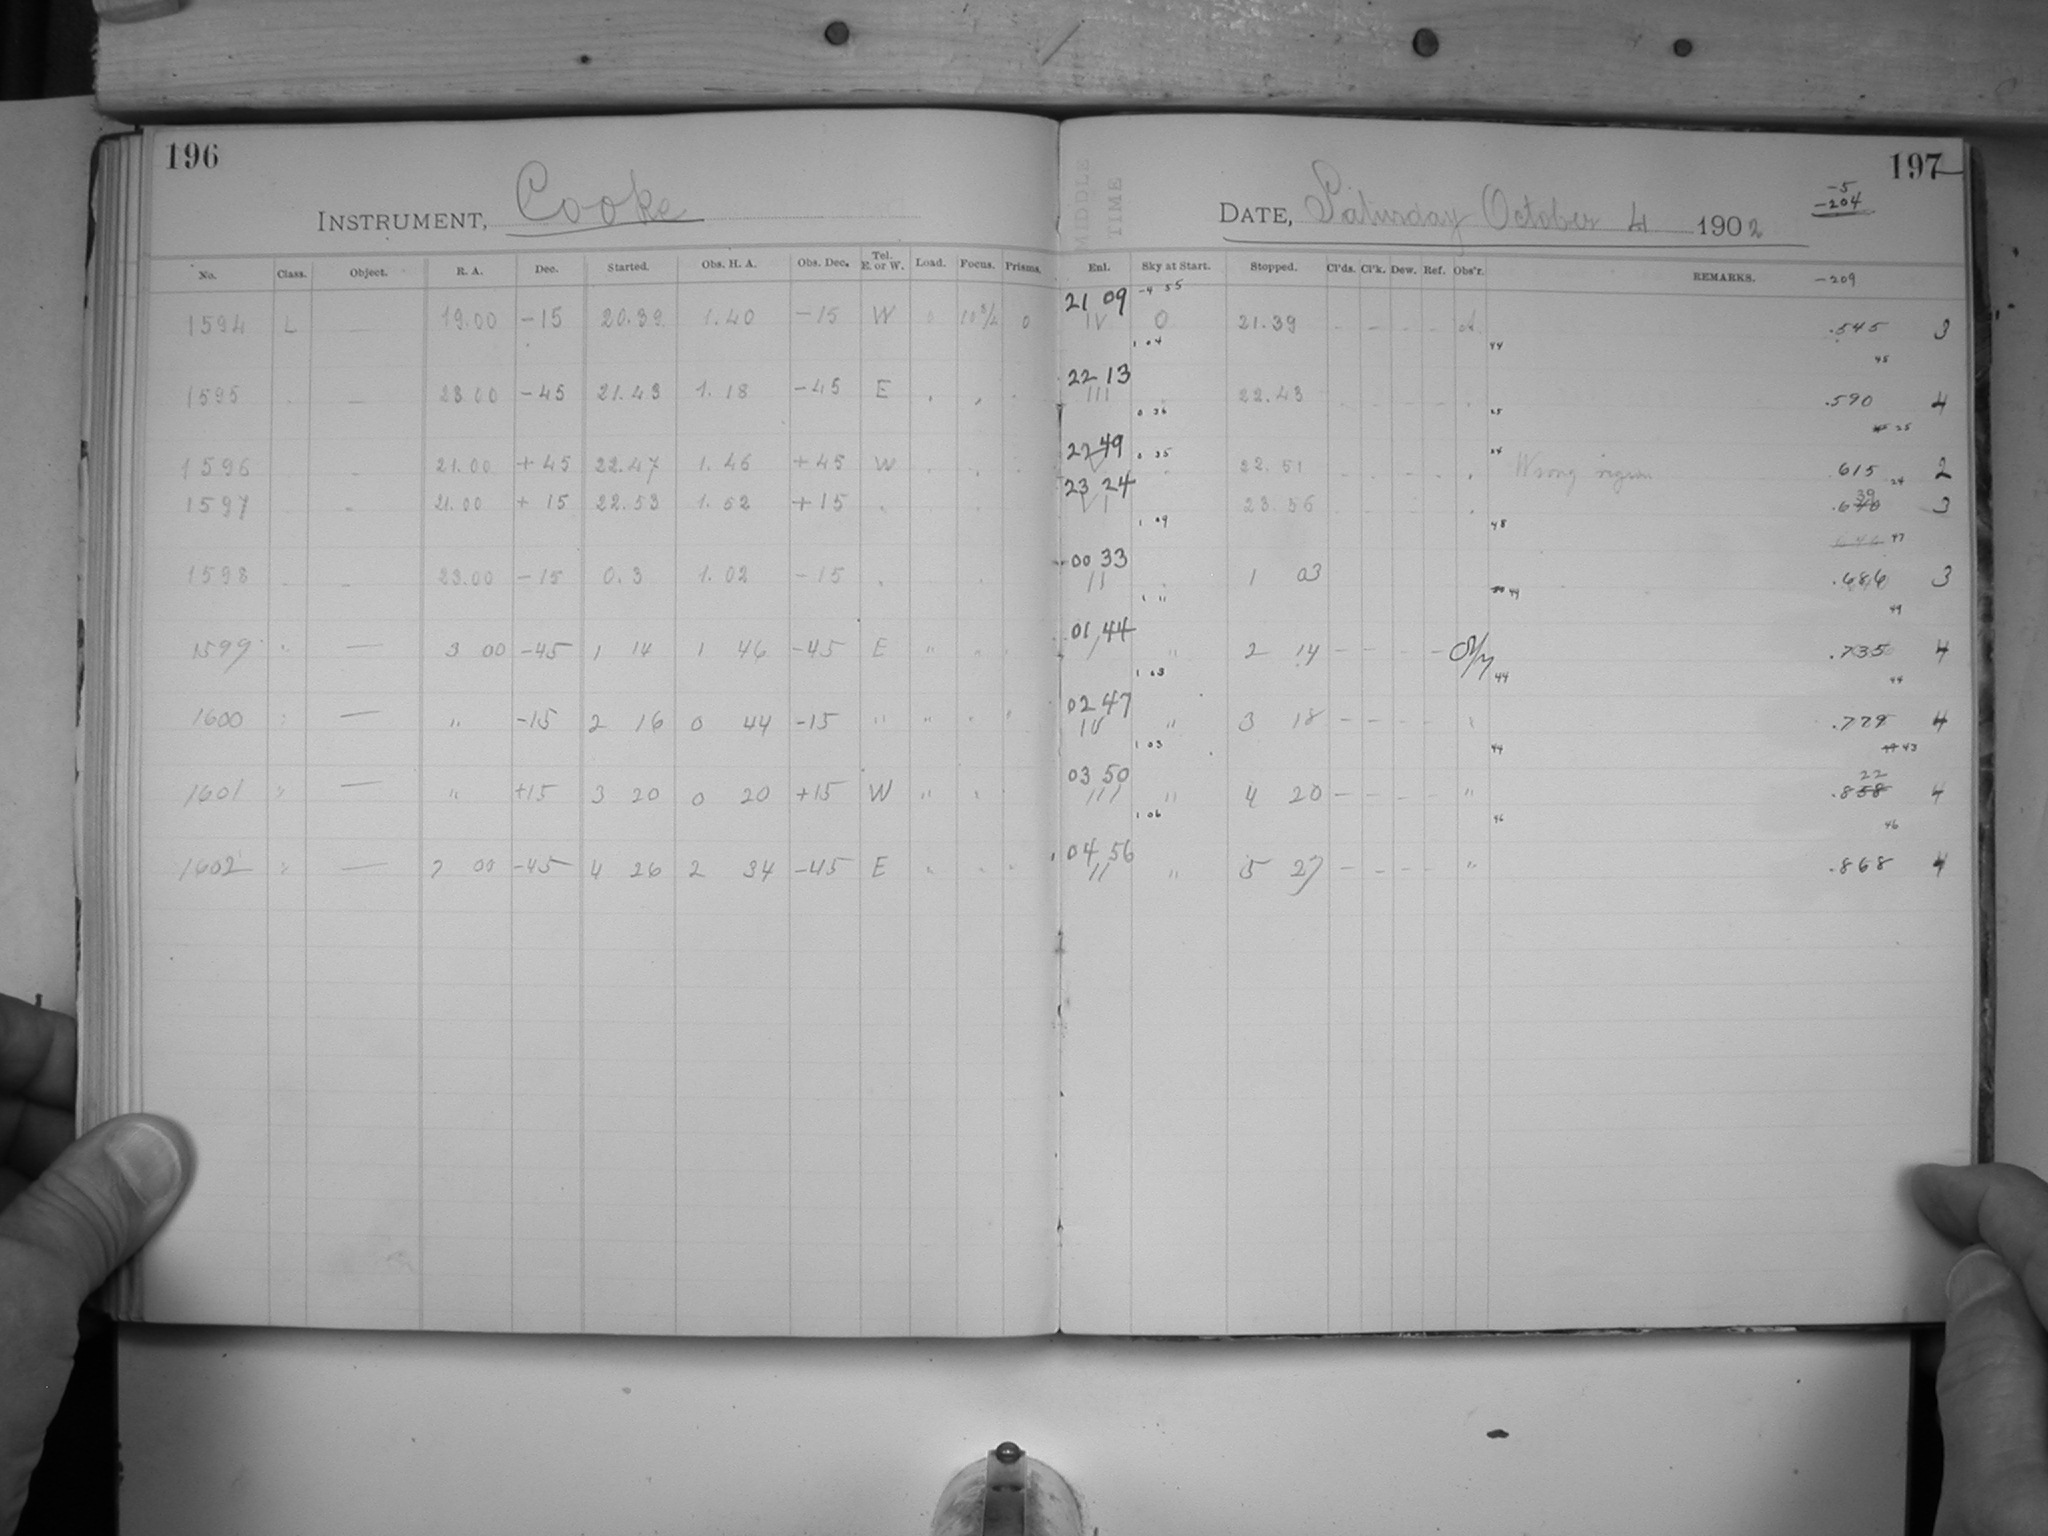 196
INSTRUMENT, Cooke
No. Class. Object. R. A. Dec. Started. Obs. H. A. Obs. Dec. Tel. E. or W. Load. Focus. Prisms.
1594 L — 19.00 -15 20.39 1.40 -15 W 0 10 3/4 0
1595 — 23.00 -45 21.43 1.18 -45 E
1596 21.00 +45 22.47 1.46 +45 W
1597 21.00 + 15 22.53 1.52 +15
1598 23.00 -15 0.3 1.02 -15
1599 " — 3 00 -45 1 14 1 46 -45 E "
1600 " — " -15 2 16 0 44 -15 " "
1601 " — " +15 3 20 0 20 +15 W "
1602 " — 7 00 -45 4 26 2 34 -45 E "
197
MIDDLE TIME
DATE, Saturday October 4 1902
-5
-204
-209
Enl. Sky at Start. Stopped. Cl'ds. Cl'k. Dew. Ref. Obs'r. REMARKS.
21 09 -4 55
IV 0 21.39 - - - - .545 3
1 04 44
45
22 13
III 22.43 .590 4
0 36 25
25
22 49 0 35 24
V 22.51 Wrong region .615 2
24
23 24 39
VI 23.56 .640 3
1 09 48
47
00 33
II 1 03 .686 3
1 11 49
49
01 44
I " 2 14 - - - - .735 4
1 03 44
44
02 47
IV " 3 18 - - - - .779 4
1 03 44
43
03 50 22
III " 4 20 - - - - " .858 4
1 06 46
46
04 56
II " 5 27 - - - - " .868 4